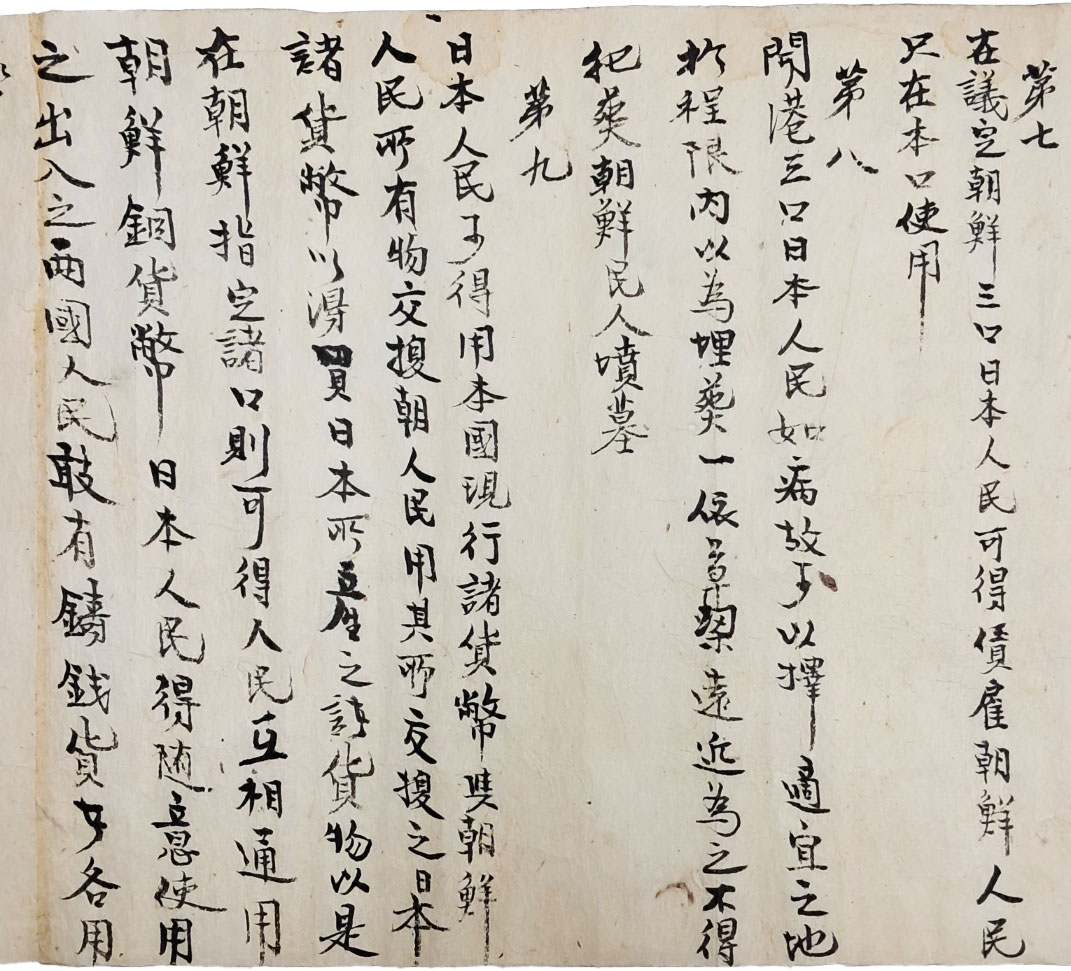 第七
在議定朝鮮三口日本人民可得賃雇朝鮮人民
只在本口使用
第八
開港三口日本人民如病故可以擇適宜之地
於程限內以為埋葬一依草梁遠近為之不得
犯葬朝鮮民人墳墓
第九
日本人民可得用本國現行諸貨幣與朝鮮
人民所有物交換朝人民用其所交換之日本
諸貨幣以得買日本所產之諸貨物以是
在朝鮮指定諸口則可得人民互相通用
朝鮮銅貨幣日本人民得随意使用
之出入之兩國人民敢有鑄銭貨各用